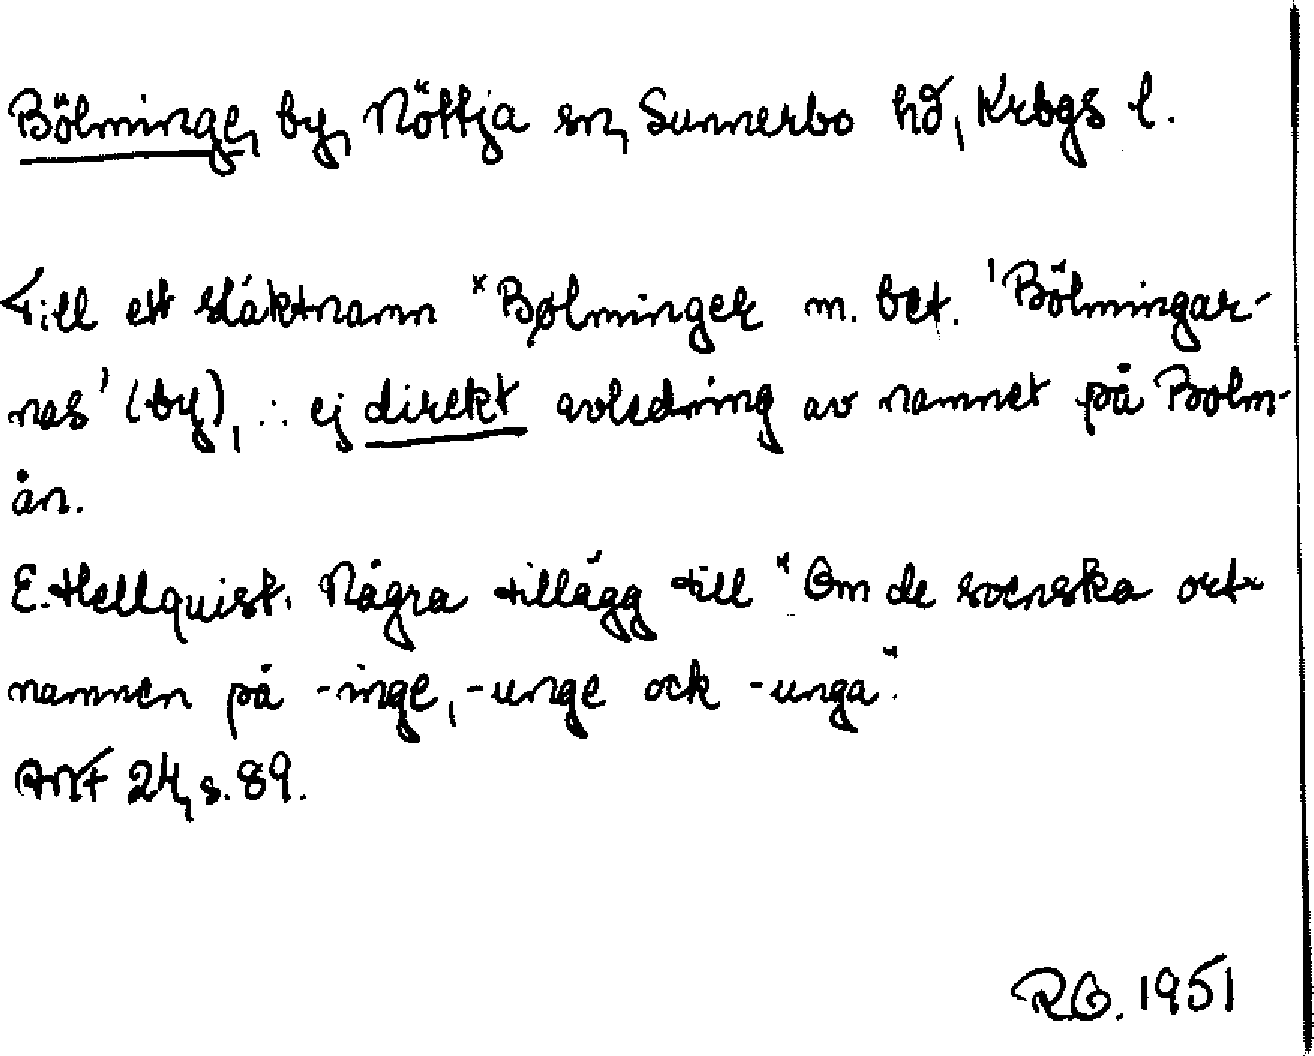 Bölminge, by, Nöttja sn, Sunnerbo hd, Krbgs l.
Till ett släktnamn *BølmingeR m. bet. 'Bölmingar-
nas' (by), ∴ ej direkt avledning av namnet på Bolm-
ån.
E. Hellquist. Några tillägg till "Om de svenska ort-
namnen på -inge, -unge ock -unga".
ANF 24, s. 89.
R.G. 1951